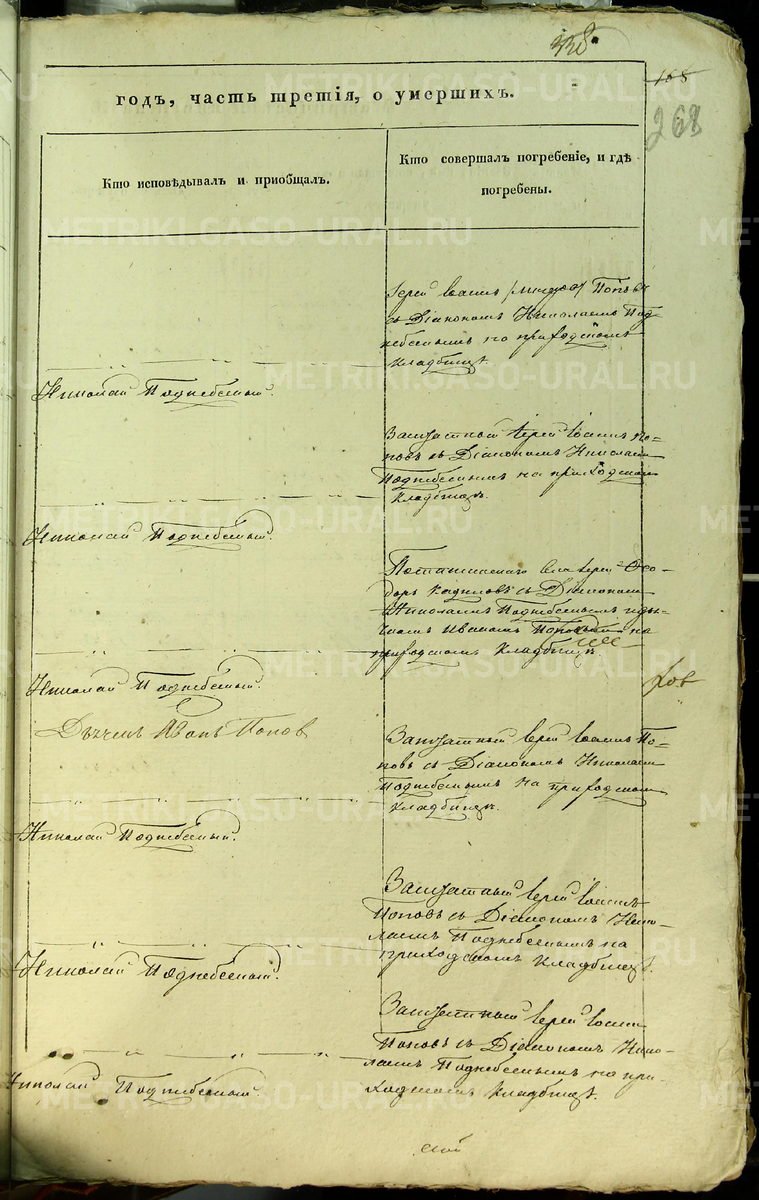 338.
168
268
годъ, часть третія, о умершихъ.
Кто исповѣдывалъ и пріобщалъ.
Кто совершалъ погребеніе, и гдѣ
погребены.
Іерей Іоаннъ Поповъ
съ Діакономъ Николаемъ Под-
небеснымъ на приходскомъ
кладбищѣ.
Николай Поднебесный.
Заштатный Іерей Іоаннъ По-
повъ съ Діакономъ Николаемъ
Поднебеснымъ на приходскомъ
кладбищѣ.
Николай Поднебесный.
села Іерей Ѳео-
доръ съ Діакономъ
Николаемъ Поднебеснымъ и дья-
чкомъ Иваномъ Поповымъ на
приходскомъ кладбищѣ.
Николай Поднебесный.
Дьячекъ Иванъ Попов
Заштатный Іерей Іоаннъ По-
повъ съ Діакономъ Николаемъ
Поднебеснымъ на приходскомъ
кладбищѣ.
Николай Поднебесный.
Заштатный Іерей Іоаннъ
Поповъ съ Діакономъ Нико-
лаемъ Поднебеснымъ на
приходскомъ кладбищѣ.
Николай Поднебесный.
Заштатный Іерей Іоаннъ
Поповъ съ Діакономъ Нико-
лаемъ Поднебеснымъ на при-
ходскомъ кладбищѣ.
Николай Поднебесный.
METRIKI.GASO-URAL.RU